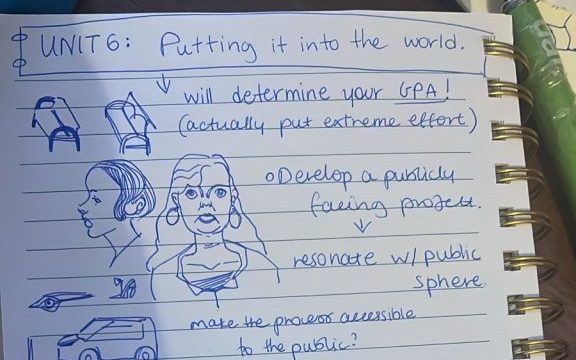 UNIT 6: Putting it into the world.
will determine your GPA!
(actually put extreme effort)
Develop a publicly
facing project.
resonate w/ public
sphere.
make the process accessible
to the public?